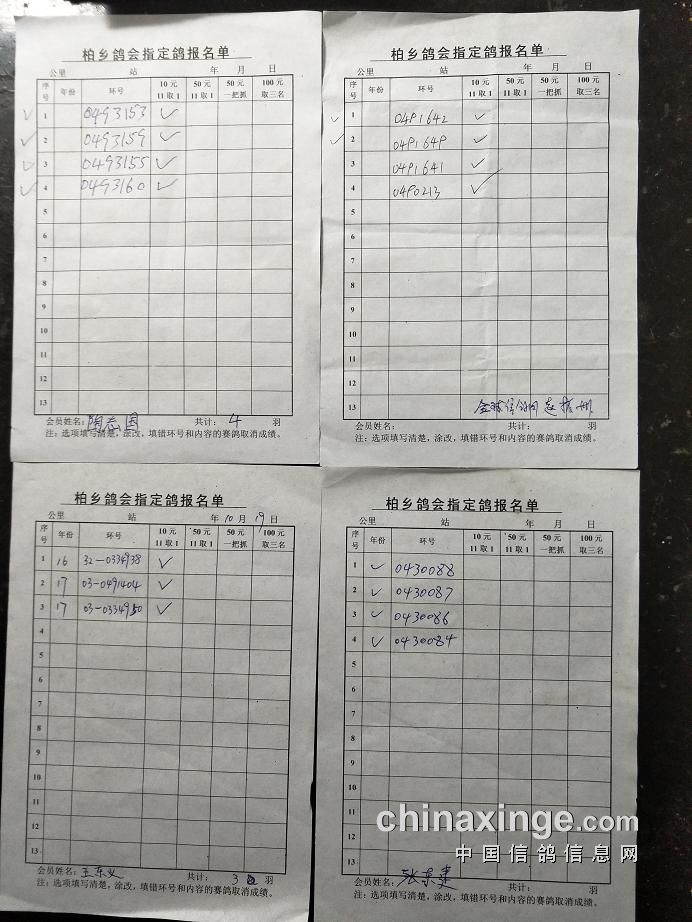 柏乡鸽会指定鸽报名单
公里 站 年 月 日
序号 年份 环号 10元11取1 50元11取1 50元一把抓 100元取三名
✓ 1 0493153 ✓
✓ 2 0493159 ✓
✓ 3 0493155 ✓
✓ 4 0493160 ✓
5
6
7
8
9
10
11
12
13
会员姓名: 陶志国 共计: 4 羽
注: 选项填写清楚, 涂改, 填错环号和内容的赛鸽取消成绩。
柏乡鸽会指定鸽报名单
公里 站 年 月 日
序号 年份 环号 10元11取1 50元11取1 50元一把抓 100元取三名
✓ 1 0491642 ✓
✓ 2 0491649 ✓
3 0491641 ✓
4 0490213 ✓
5
6
7
8
9
10
11
12
13
会员姓名: 共计: 羽
注: 选项填写清楚, 涂改, 填错环号和内容的赛鸽取消成绩。
柏乡鸽会指定鸽报名单
公里 站 年 10 月 19 日
序号 年份 环号 10元11取1 50元11取1 50元一把抓 100元取三名
1 16 32-0334938 ✓
2 17 03-0491404 ✓
3 17 03-0334950 ✓
4
5
6
7
8
9
10
11
12
13
会员姓名: 王东义 共计: 3 羽
注: 选项填写清楚, 涂改, 填错环号和内容的赛鸽取消成绩。
柏乡鸽会指定鸽报名单
公里 站 年 月 日
序号 年份 环号 10元11取1 50元11取1 50元一把抓 100元取三名
1 ✓ 0430088
2 ✓ 0430087
3 ✓ 0430086
4 ✓ 0430084
5
6
7
8
9
10
11
12
13
会员姓名: 张东建 共计: 羽
注: 选项填写清楚, 涂改, 填错环号和内容的赛鸽取消成绩。
chinaxinge.com
中国信鸽信息网